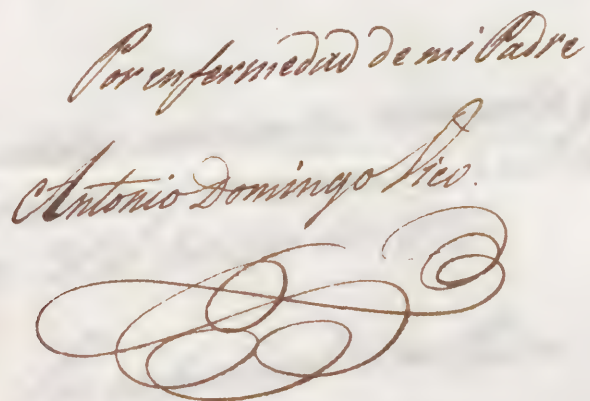 Por enfermedad de mi Padre
Antonio Domingo Vico.